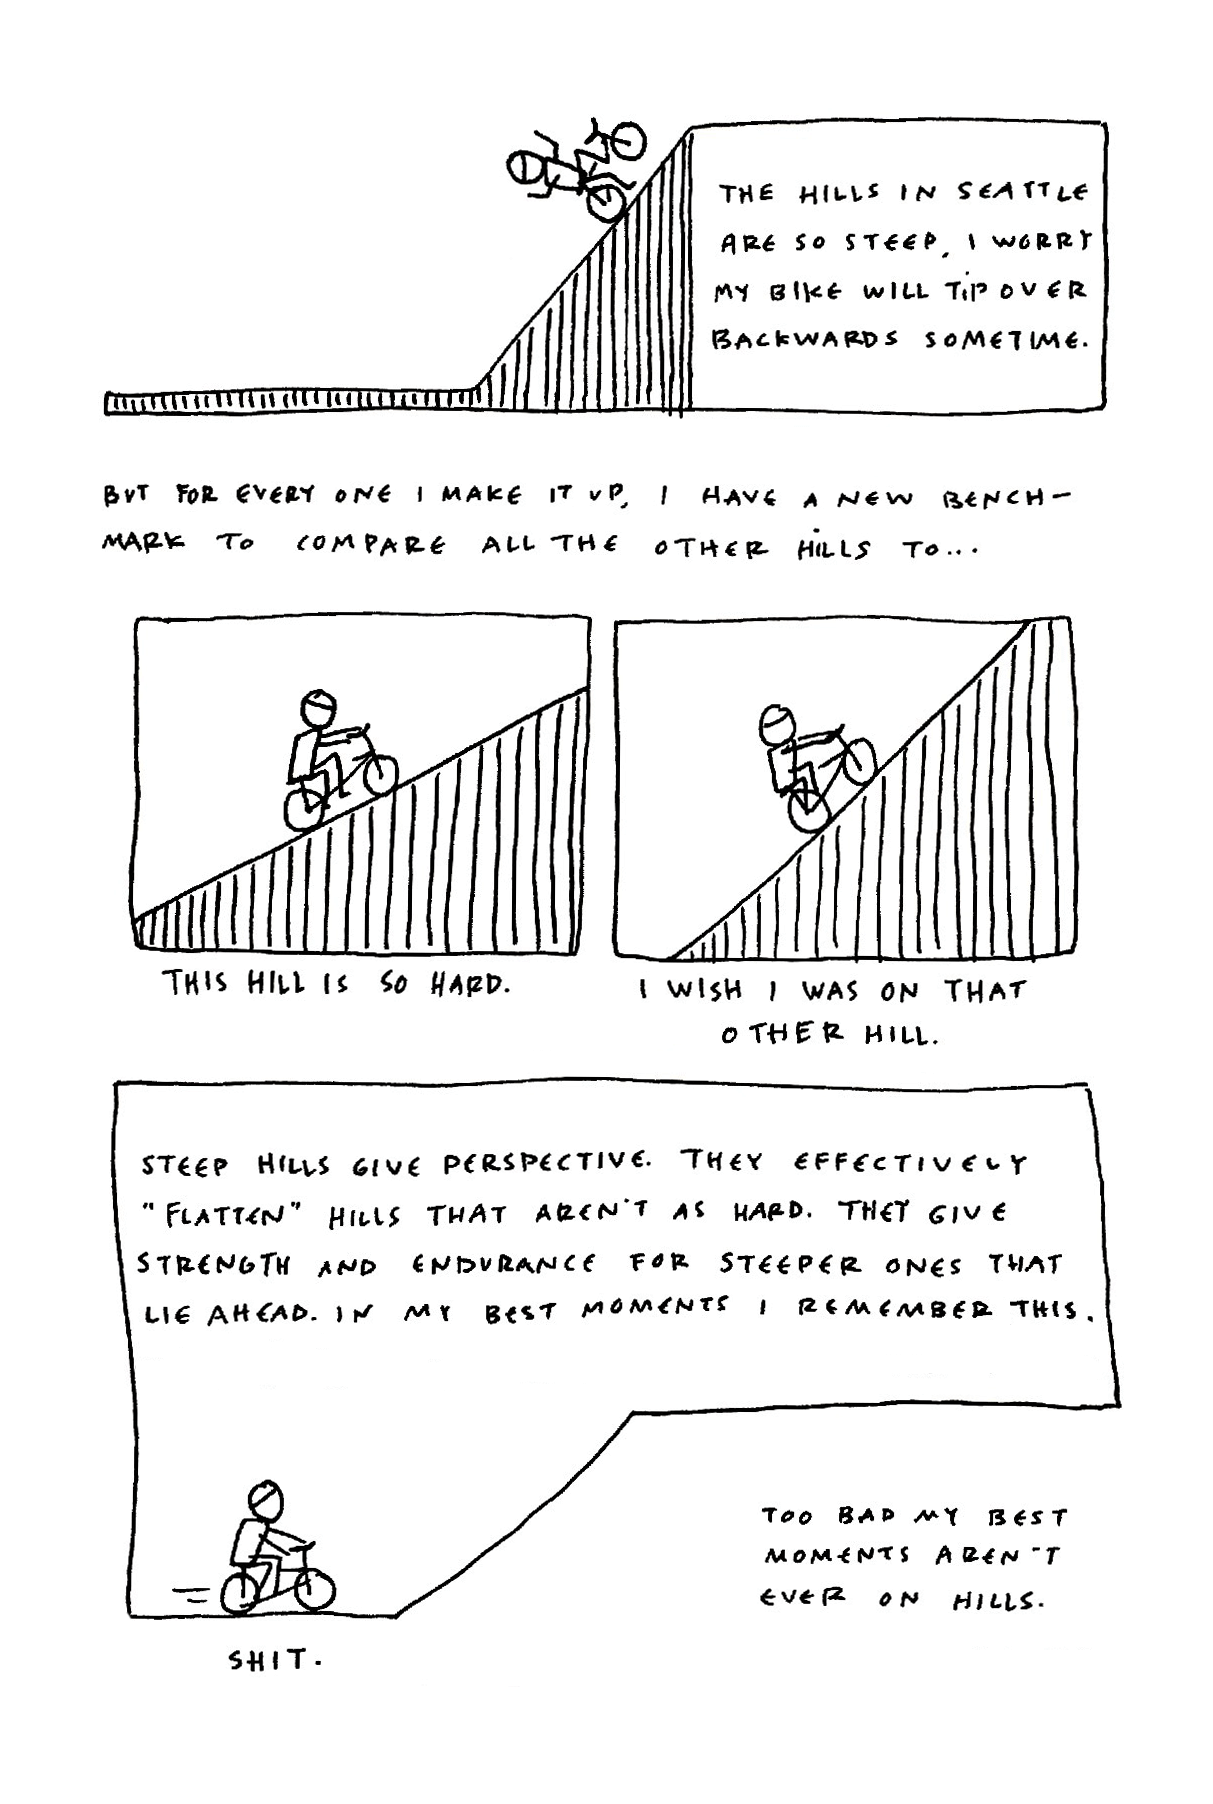 THE HILLS IN SEATTLE
ARE SO STEEP, I WORRY
MY BIKE WILL TIP OVER
BACKWARDS SOMETIME.
BUT FOR EVERY ONE I MAKE IT UP, I HAVE A NEW BENCH-
MARK TO COMPARE ALL THE OTHER HILLS TO...
THIS HILL IS SO HARD.
I WISH I WAS ON THAT
OTHER HILL.
STEEP HILLS GIVE PERSPECTIVE. THEY EFFECTIVELY
"FLATTEN" HILLS THAT AREN'T AS HARD. THEY GIVE
STRENGTH AND ENDURANCE FOR STEEPER ONES THAT
LIE AHEAD. IN MY BEST MOMENTS I REMEMBER THIS.
TOO BAD MY BEST
MOMENTS AREN'T
EVER ON HILLS.
SHIT.